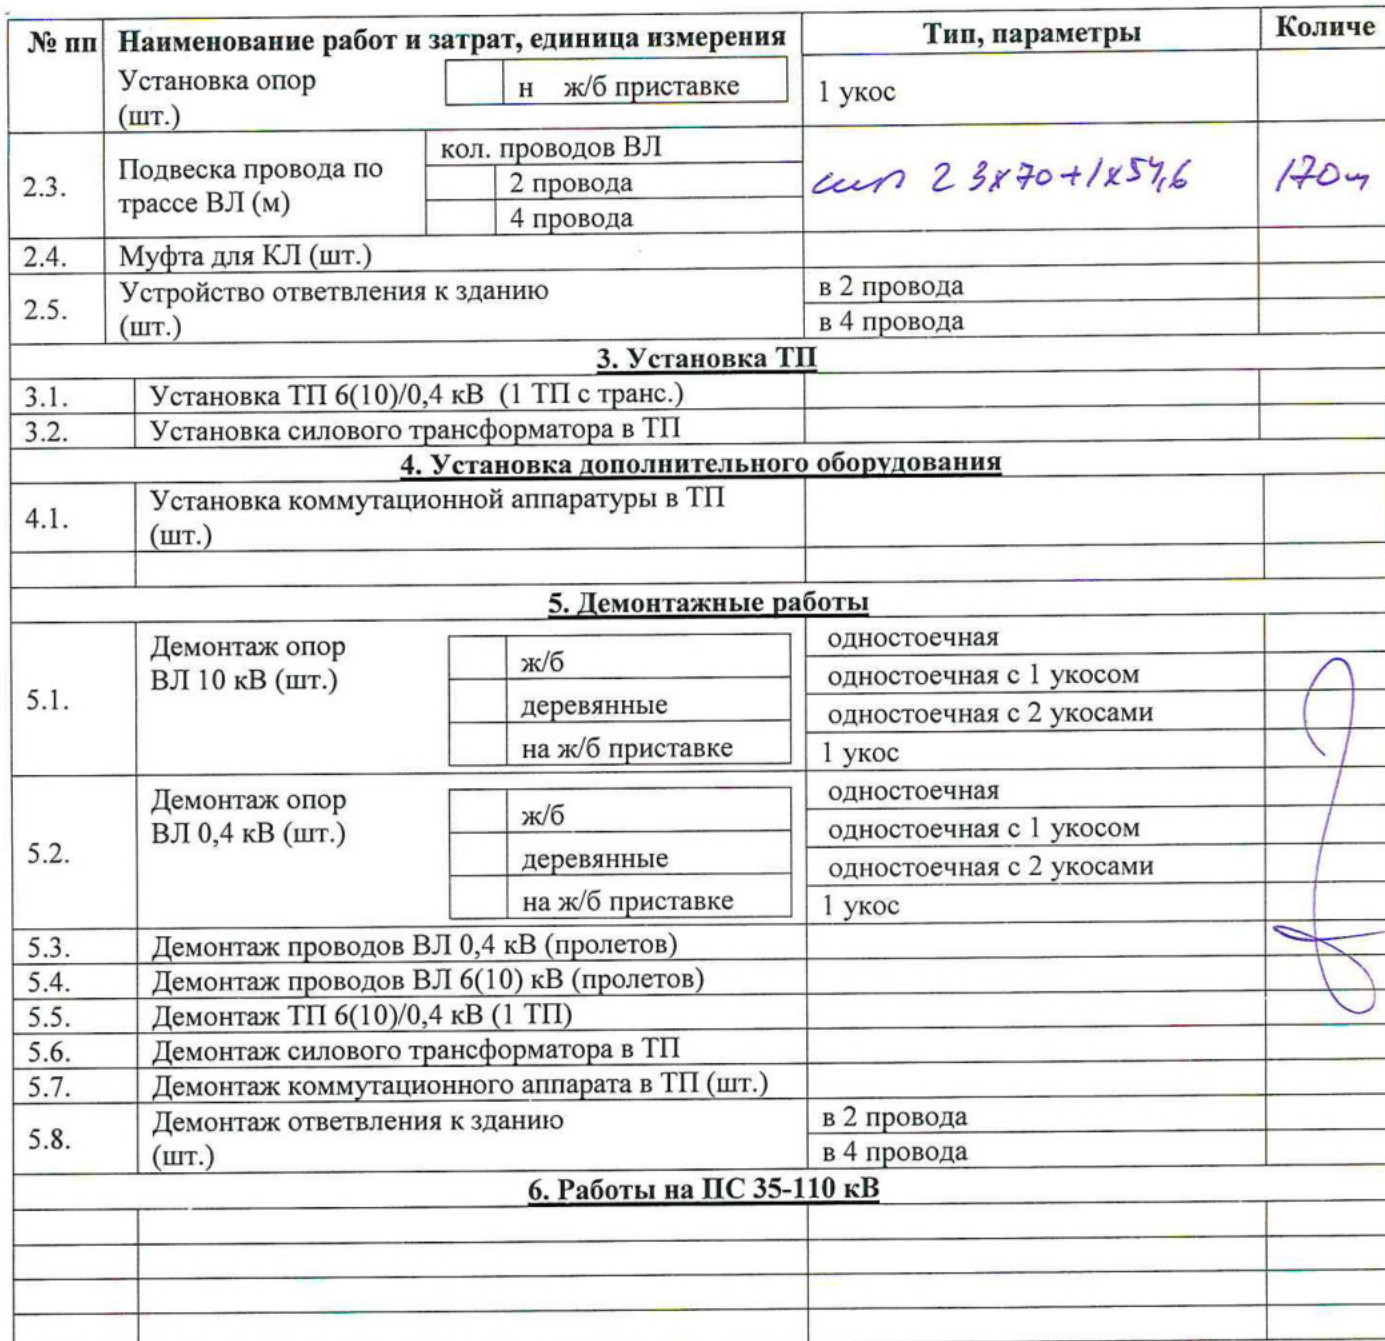 № пп Наименование работ и затрат, единица измерения Тип, параметры Количе
Установка опор
(шт.)
н ж/б приставке
1 укос
2.3.
Подвеска провода по
трассе ВЛ (м)
кол. проводов ВЛ
2 провода
4 провода
сип 2 3х70+1х54,6
170м
2.4. Муфта для КЛ (шт.)
2.5.
Устройство ответвления к зданию
(шт.)
в 2 провода
в 4 провода
3. Установка ТП
3.1. Установка ТП 6(10)/0,4 кВ (1 ТП с транс.)
3.2. Установка силового трансформатора в ТП
4. Установка дополнительного оборудования
4.1.
Установка коммутационной аппаратуры в ТП
(шт.)
5. Демонтажные работы
5.1.
Демонтаж опор
ВЛ 10 кВ (шт.)
ж/б
деревянные
на ж/б приставке
одностоечная
одностоечная с 1 укосом
одностоечная с 2 укосами
1 укос
5.2.
Демонтаж опор
ВЛ 0,4 кВ (шт.)
ж/б
деревянные
на ж/б приставке
одностоечная
одностоечная с 1 укосом
одностоечная с 2 укосами
1 укос
5.3. Демонтаж проводов ВЛ 0,4 кВ (пролетов)
5.4. Демонтаж проводов ВЛ 6(10) кВ (пролетов)
5.5. Демонтаж ТП 6(10)/0,4 кВ (1 ТП)
5.6. Демонтаж силового трансформатора в ТП
5.7. Демонтаж коммутационного аппарата в ТП (шт.)
5.8.
Демонтаж ответвления к зданию
(шт.)
в 2 провода
в 4 провода
6. Работы на ПС 35-110 кВ